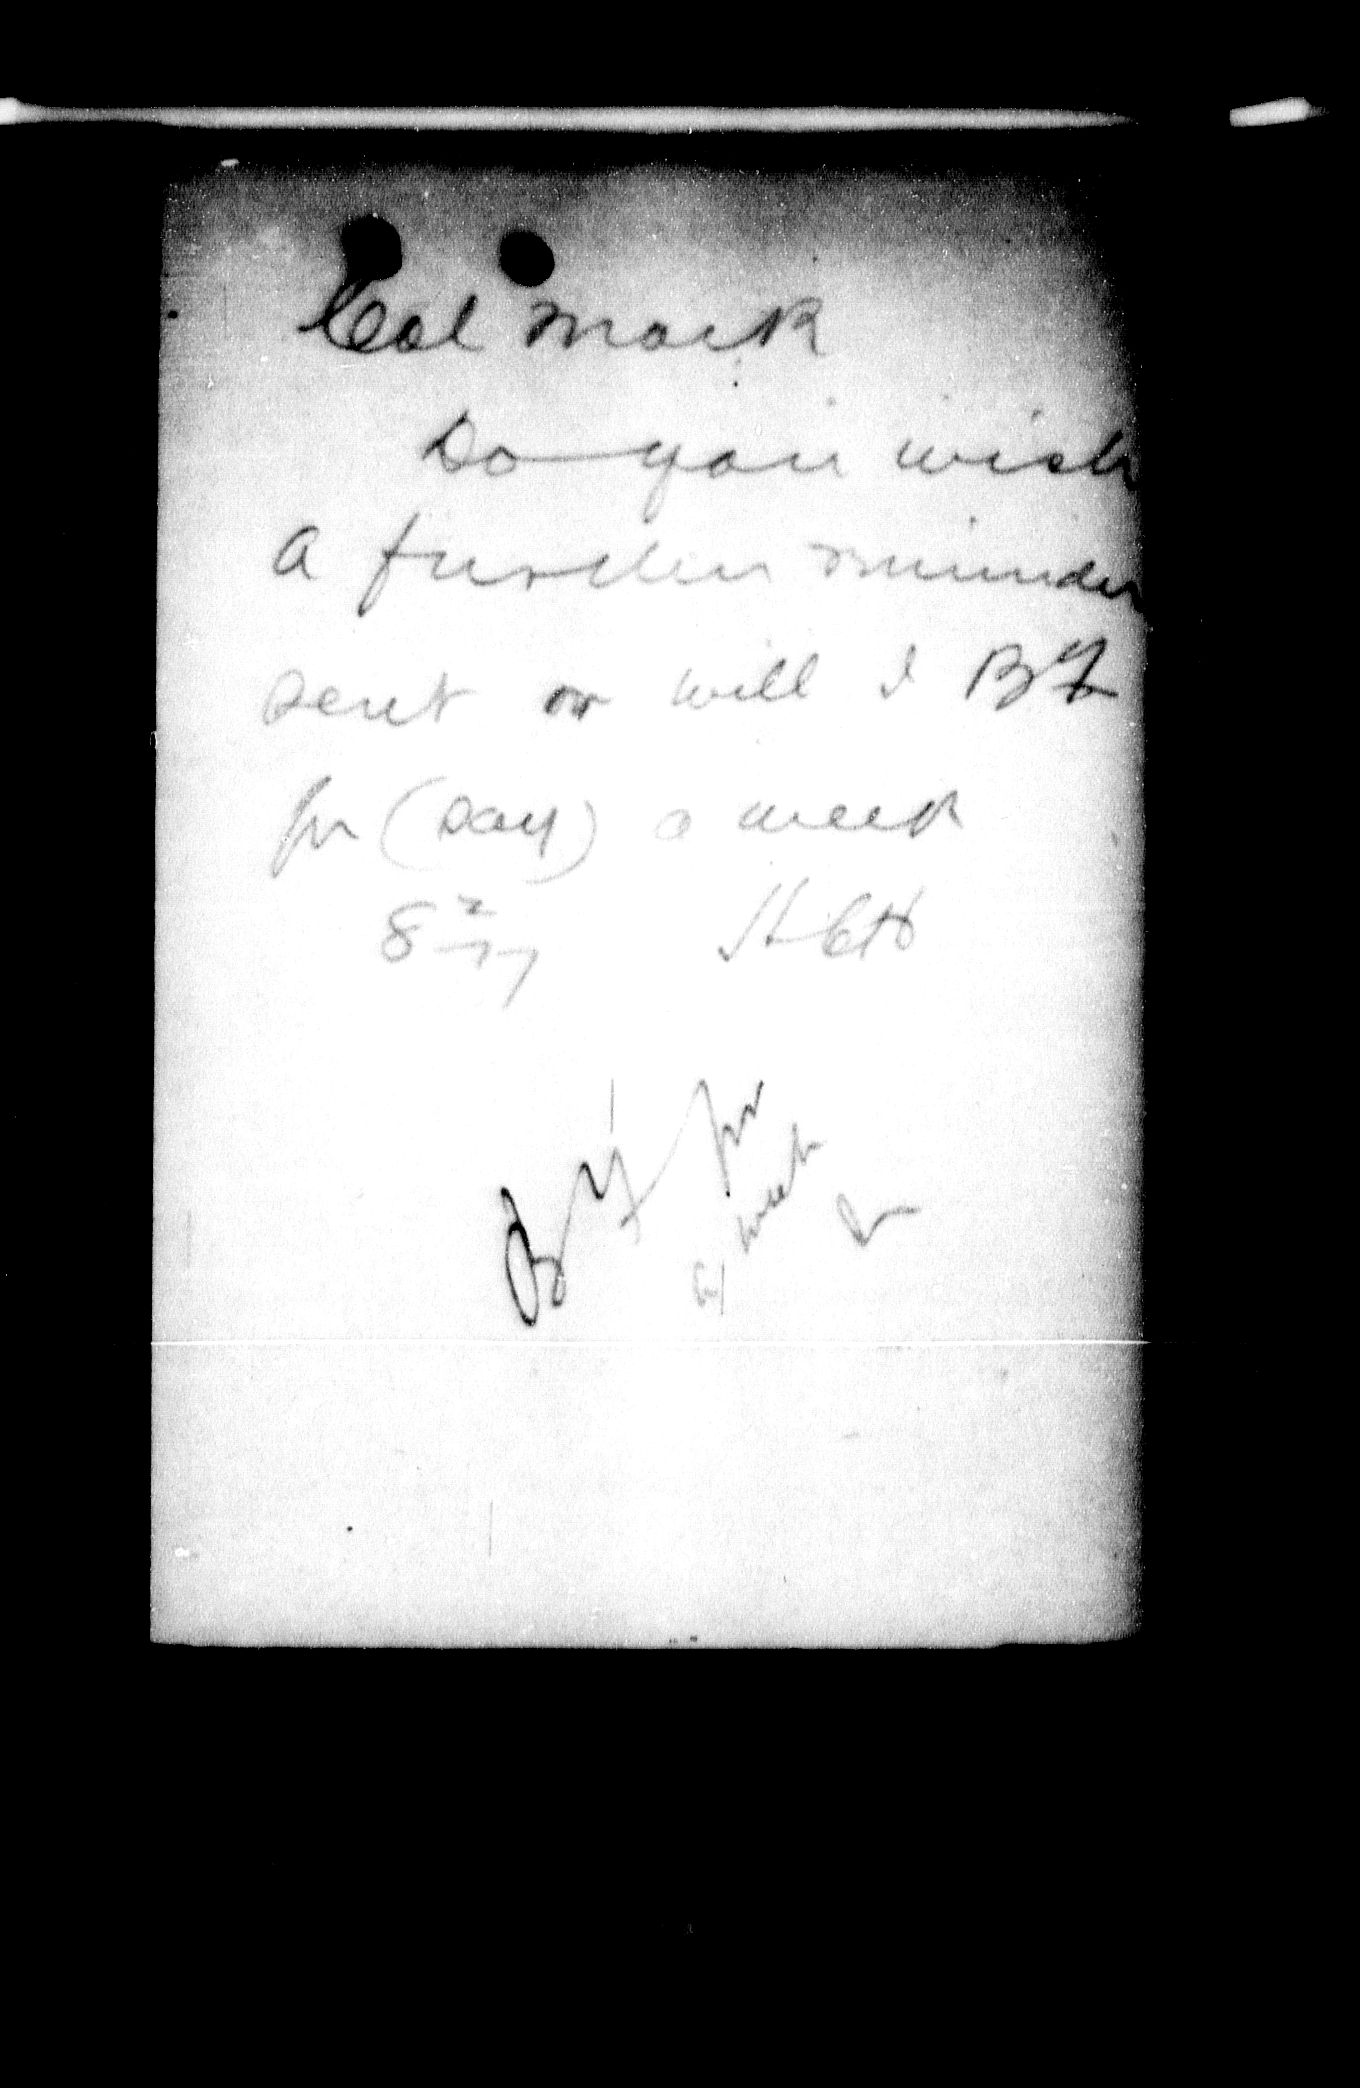 Col Mack
Do you wish
a further reminder
sent or will I BF
for (say) a week
8 2/17 HCH
BF for
a week